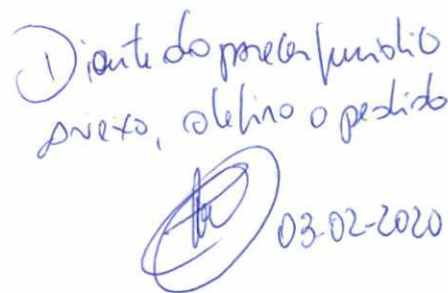 Diante do parecer jurídico
anexo, defiro o pedido
03-02-2020